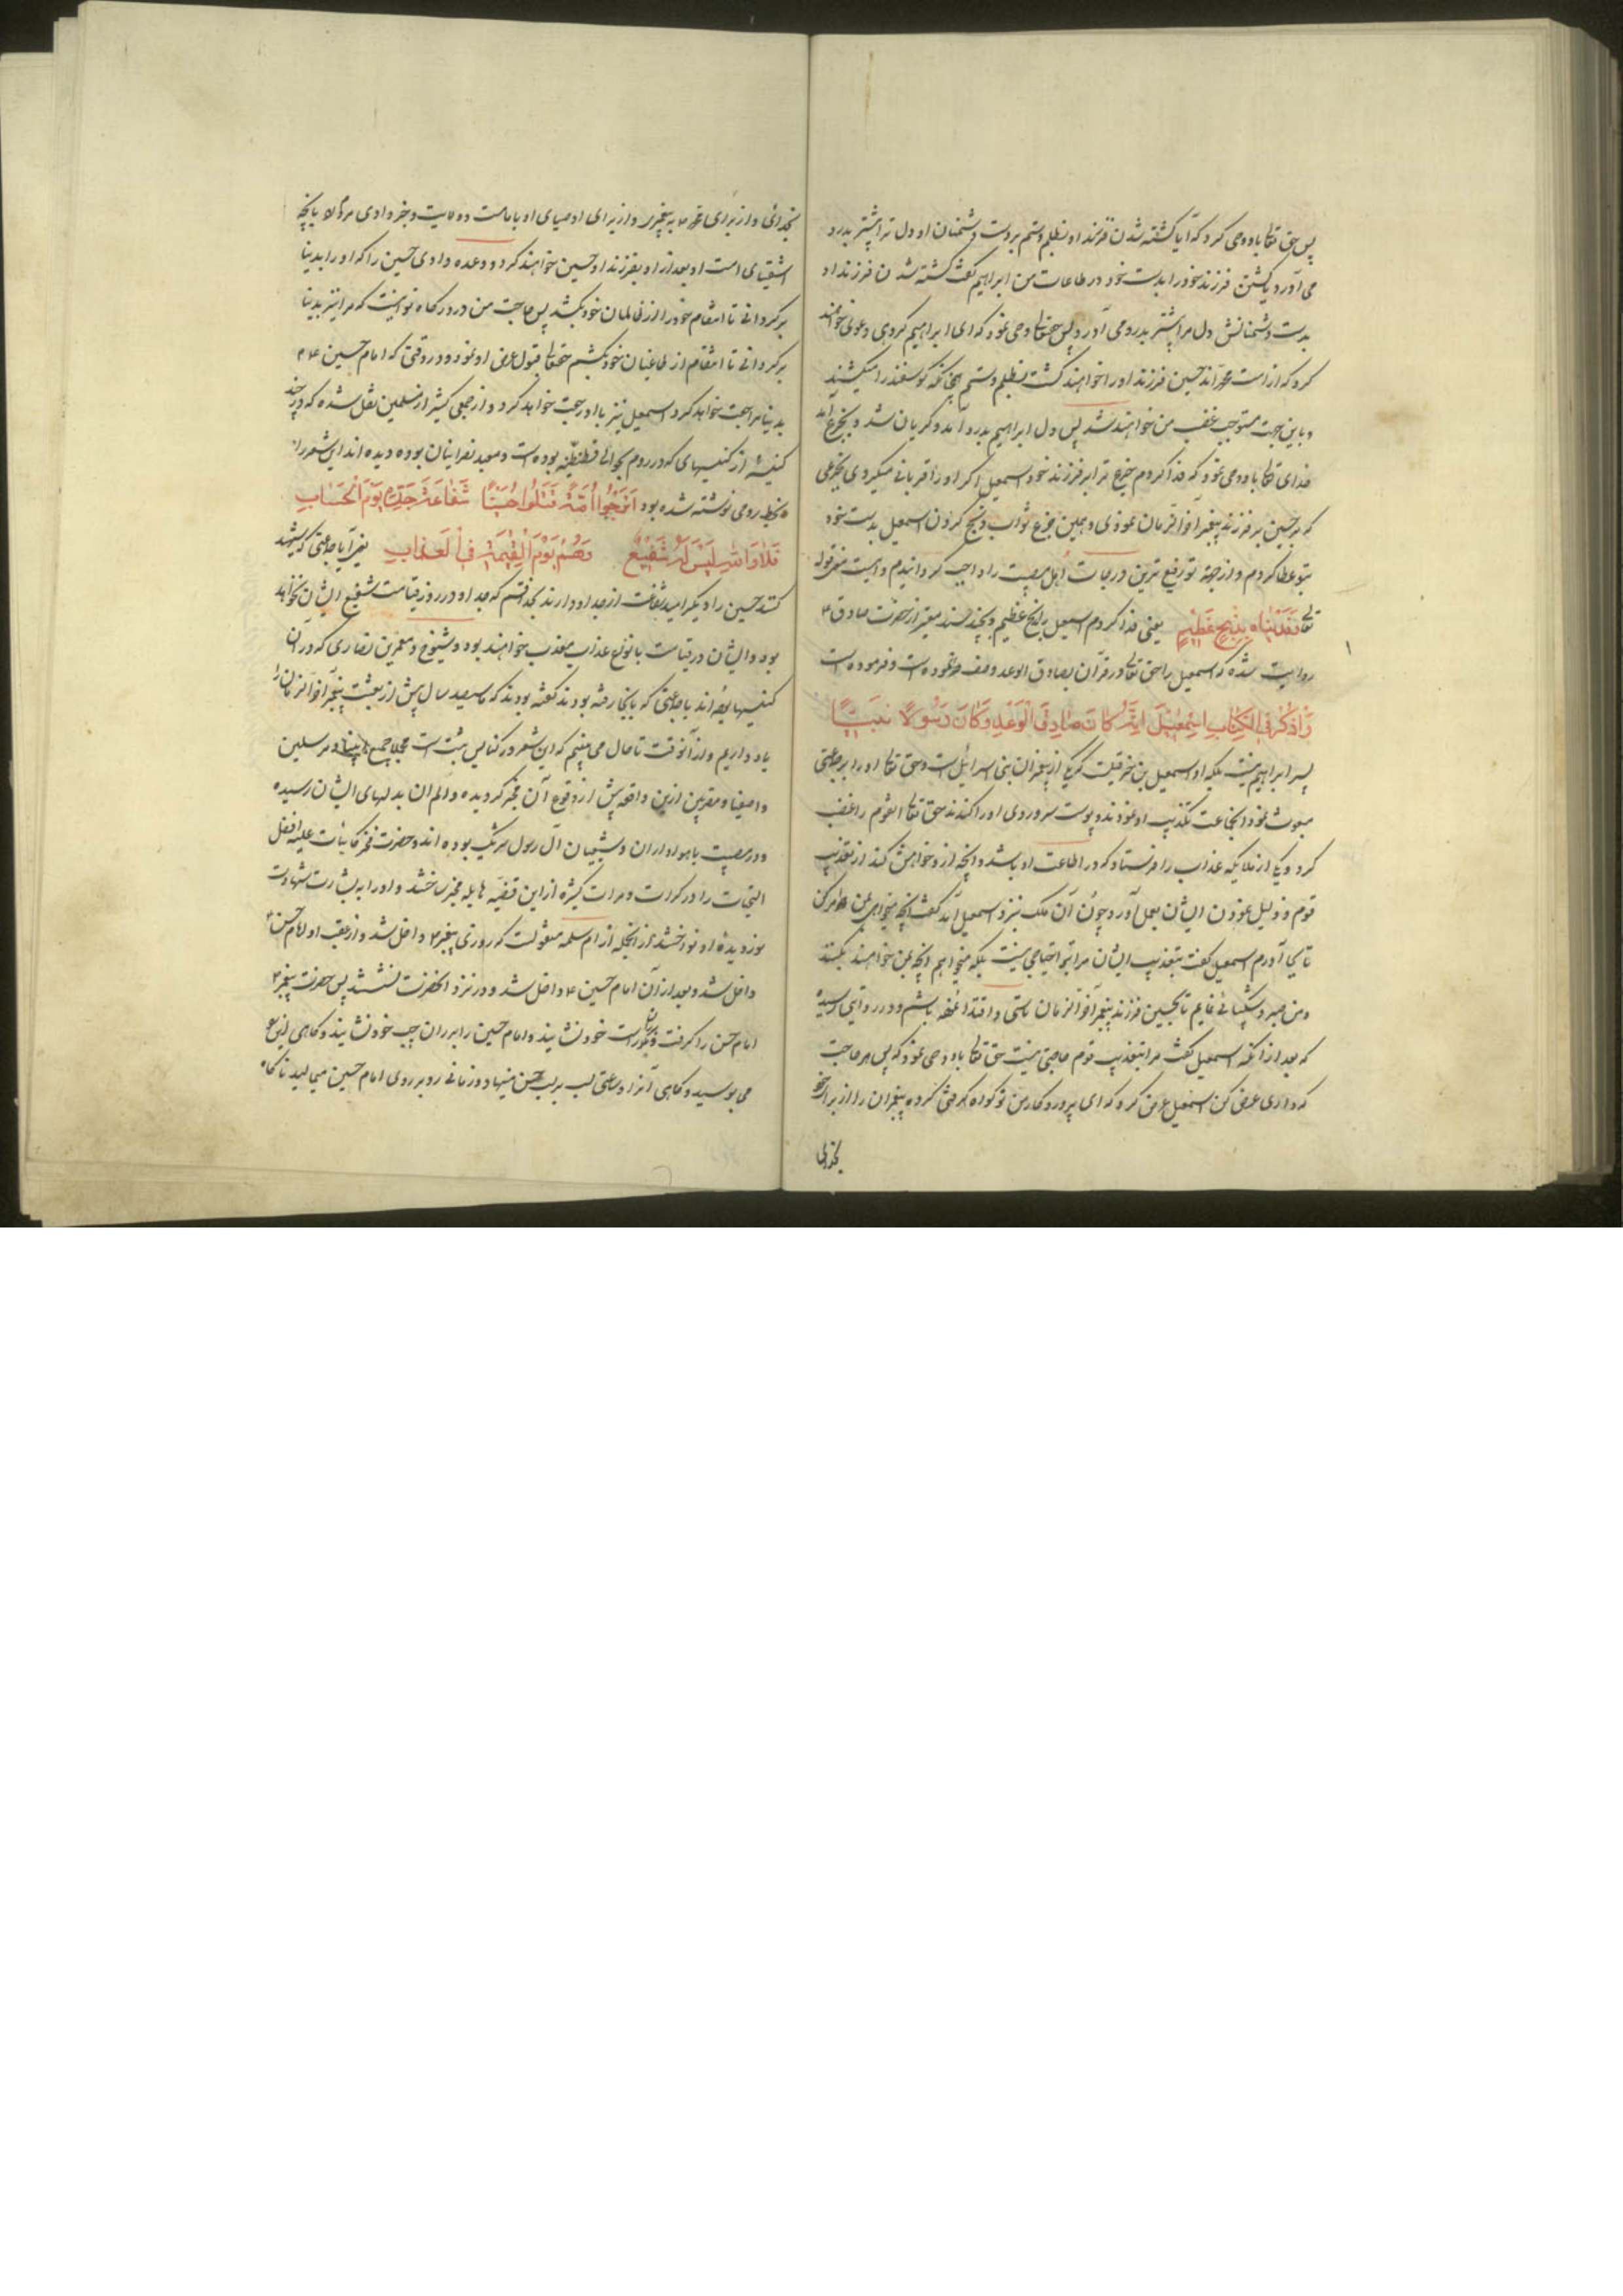 پس حق تعالی باو وحی کرد که آیا کشته شدن فرزند او بظلم و ستم بر دست دشمنان او دل ترا بیشتر بدرد
می آورد یا کشتن فرزند خود را بدست خود در طاعات من ابراهیم گفت کشته شدن فرزند او
بدست دشمنانش دل مرا بیشتر بدرد می آورد پس حقتعالی وحی نمود که ای ابراهیم گروهی دعوی خواهند
کرد که از امت محمداند حسین فرزند او را خواهند کشت بظلم و ستم چنانکه گوسفند را میکشند
و باین جهت مستوجب غضب من خواهند شد پس دل ابراهیم بدرد آمد و گریان شد و بجزع آمد
خدای تعالی باو وحی نمود که فدا کردم جزع ترا بر فرزند خود اسمعیل اگر او را قربانی میکردی بجزعی
که بر حسین بر فرزند پیغمبر آخر الزمان نمودی و بهمین جزع ثواب ذبح کردن اسمعیل بدست خود
بتو عطا کردم و از جهة تو رفیع ترین درجات اهل مصیبت را واجب گردانیدم و اینست معنی قوله
تعالی فَفَدَیْنَاهُ بِذِبْحٍ عَظِیْمٍ یعنی فدا کردم اسمعیل را بذبح عظیم و بچند سند معتبر از حضرت صادق ع
روایت شده که اسمعیل را حق تعالی در قرآن بصادق الوعد وصف نموده است و فرموده است
وَاذْکُرْ فِی الْکِتَابِ اِسْمٰعِیْلَ اِنَّهُ کَانَ صَادِقَ الْوَعْدِ وَکَانَ رَسُولًا نَبِیًّا
پسر ابراهیم نیست بلکه او اسمعیل بن حزقیلست که یکی از پیغمبران بنی اسرائیل است و حق تعالی او را بر جماعتی
مبعوث نمود آنجماعت تکذیب او نمودند و پوست سر و روی او را کندند حق تعالی آنقوم را غضب
کرد و یکی از ملایکه عذاب را فرستاد که در اطاعت او باشد و آنچه از او خواهش کند از تعذیب
قوم و ذلیل نمودن ایشان بعمل آورد و چون آن ملک بنزد اسمعیل آمد گفت آنچه میخواهی بمن امر کن
تا بجا آورم اسمعیل گفت بتعذیب ایشان مرا بتو احتیاجی نیست بلکه میخواهم آنچه بمن خواهند بکنند
و من صبر و شکیبائی نمایم تا بحسین فرزند پیغمبر آخر الزمان تاسی و اقتدا نموده باشم و در روایتی رسیده
که بعد از آنکه اسمعیل گفت مرا بتعذیب قوم حاجتی نیست حق تعالی باو وحی نمود که پس هر حاجت
که داری عرض کن اسمعیل عرض کرد که ای پروردگار من تو گواه گرفتی گروه پیغمبران را از برای خود
بخدائی
بخدائی و از برای محمد به پیغمبری و از برای اوصیای او بامامت و ولایت و خبر دادی
اشقیای امت او بعد از او بفرزند او حسین خواهند کرد و وعده دادی حسین را که او را بدنیا
برگردانی تا انتقام خود را از ظالمان خود بکشد پس حاجت من در درگاه تو اینست که مرا نیز بدنیا
برگردانی تا انتقام از طاغیان خود بکشم حقتعالی قبول عرض او نمود و در وقتی که امام حسین ع
بدنیا مراجعت خواهد کرد اسمعیل نیز با او رجعت خواهد کرد و از جمعی کثیر از مسلمین نقل شده که در چند
کنیسه از کنیسهای که در روم بحوالی قسطنطنیه بوده است و معبد نصرانیان بوده دیده اند این شعر را
بخط رومی نوشته شده بود اَتَرْجُو اُمَّةٌ قَتَلُوا حُسَیْنًا شَفَاعَةَ جَدِّهِ یَوْمَ الْحِسَابِ
فَلَا وَاللهِ لَیْسَ لَهُمْ شَفِیْعٌ وَهُمْ یَوْمَ الْقِیٰمَةِ فِی الْعَذَابِ یعنی آیا جماعتی که شهید
کنند حسین را دیگر امید شفاعت از جد او دارند بخدا قسم که جد او در روز قیامت شفیع ایشان نخواهد
بود و ایشان در قیامت بانواع عذاب معذب خواهند بود و شیوخ و معمرین نصاری که در آن
کنیسها بوده اند با جماعتی که بآنجا رفته بودند گفته بودند که ما سیصد سال پیش از بعثت پیغمبر آخر الزمان را
یاد داریم و از آنوقت تا حال می بینیم که این شعر در کنایس ثبت است مجملا جمیع انبیا و مرسلین
و اصفیا و مقربین ازین واقعه پیش از وقوع آن مخبر گردیده و الم آن بدلهای ایشان رسیده
و در مصیبت با هواداران و شیعیان آل رسول شریک بوده اند و حضرت فخر کاینات علیه افضل
التحیات را در کرات و مرات کثیره از این قضیه هایله مخبر ساختند و او را به بشارت شهادت
نور دیده او نواختند از آنجمله از ام سلمه منقولست که روزی پیغمبر ص داخل شد و از عقب او امام حسن ع
داخل شد و بعد از آن امام حسین ع داخل شد و در نزد آنحضرت نشستند پس حضرت پیغمبر ص
امام حسن را گرفت و بر ران راست خود نشانید و امام حسین را بر ران چپ خود نشانید و گاهی این را
می بوسید و گاهی آنرا و ساعتی لب بر لب حسن مینهاد و زمانی رو بر روی امام حسین میمالید ناگاه